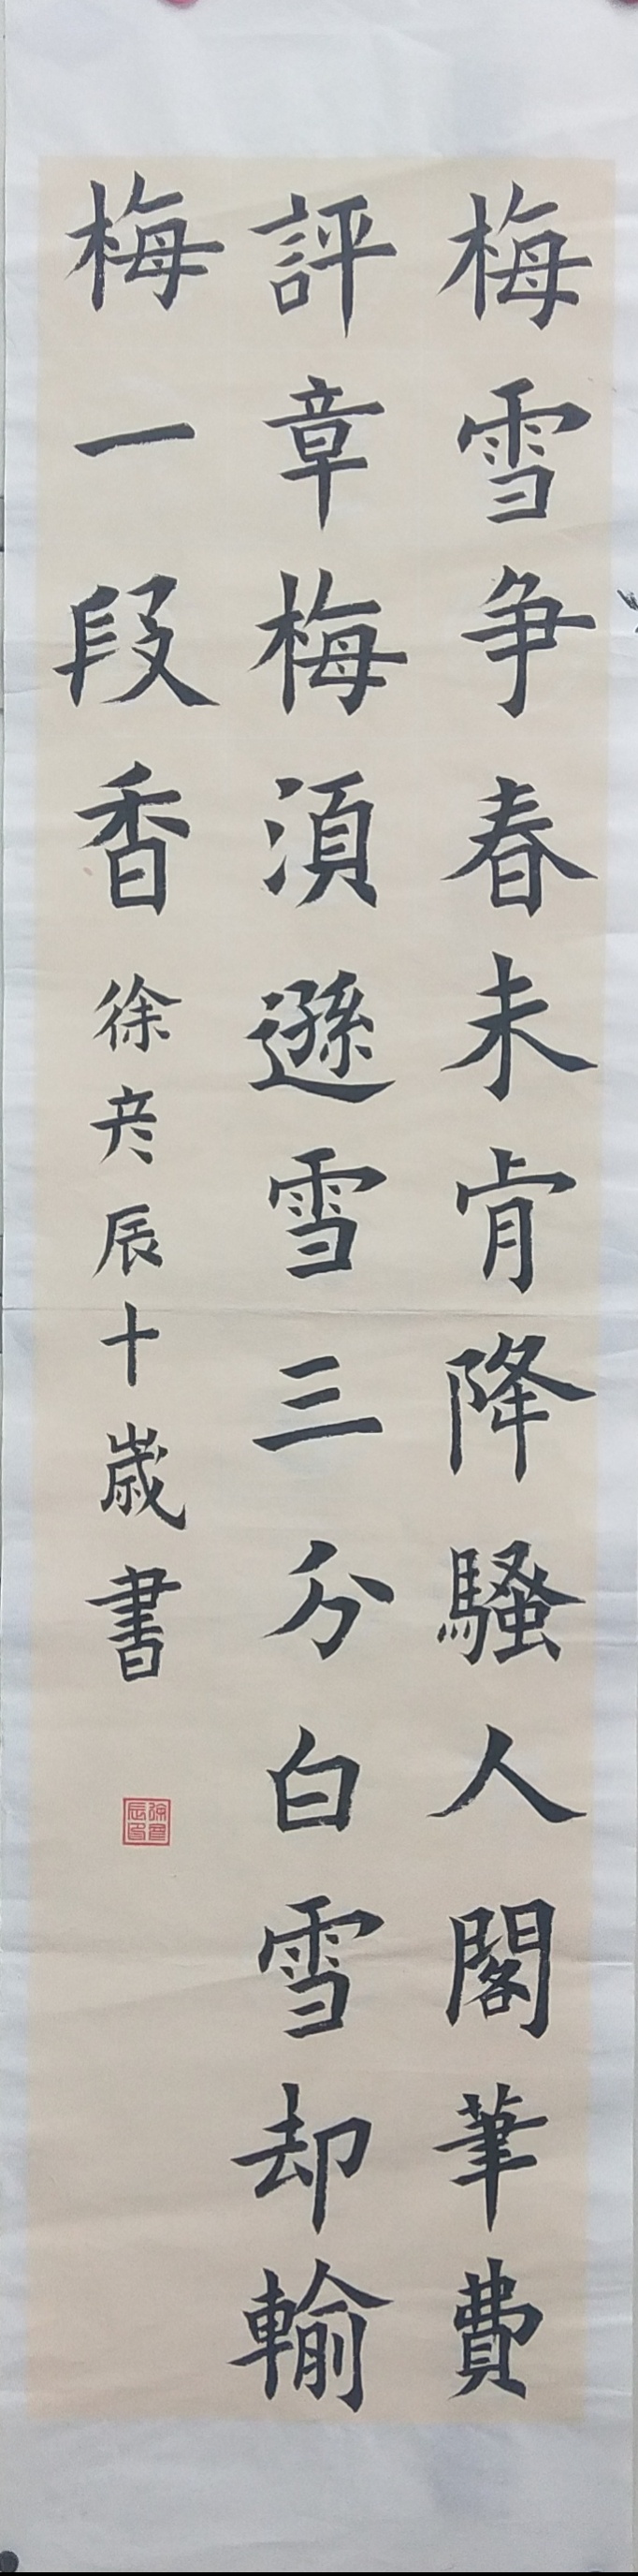 梅雪争春未肯降騷人閣筆費
評章梅湏遜雪三分白雪却輸
梅一段香
徐彦辰十歲書